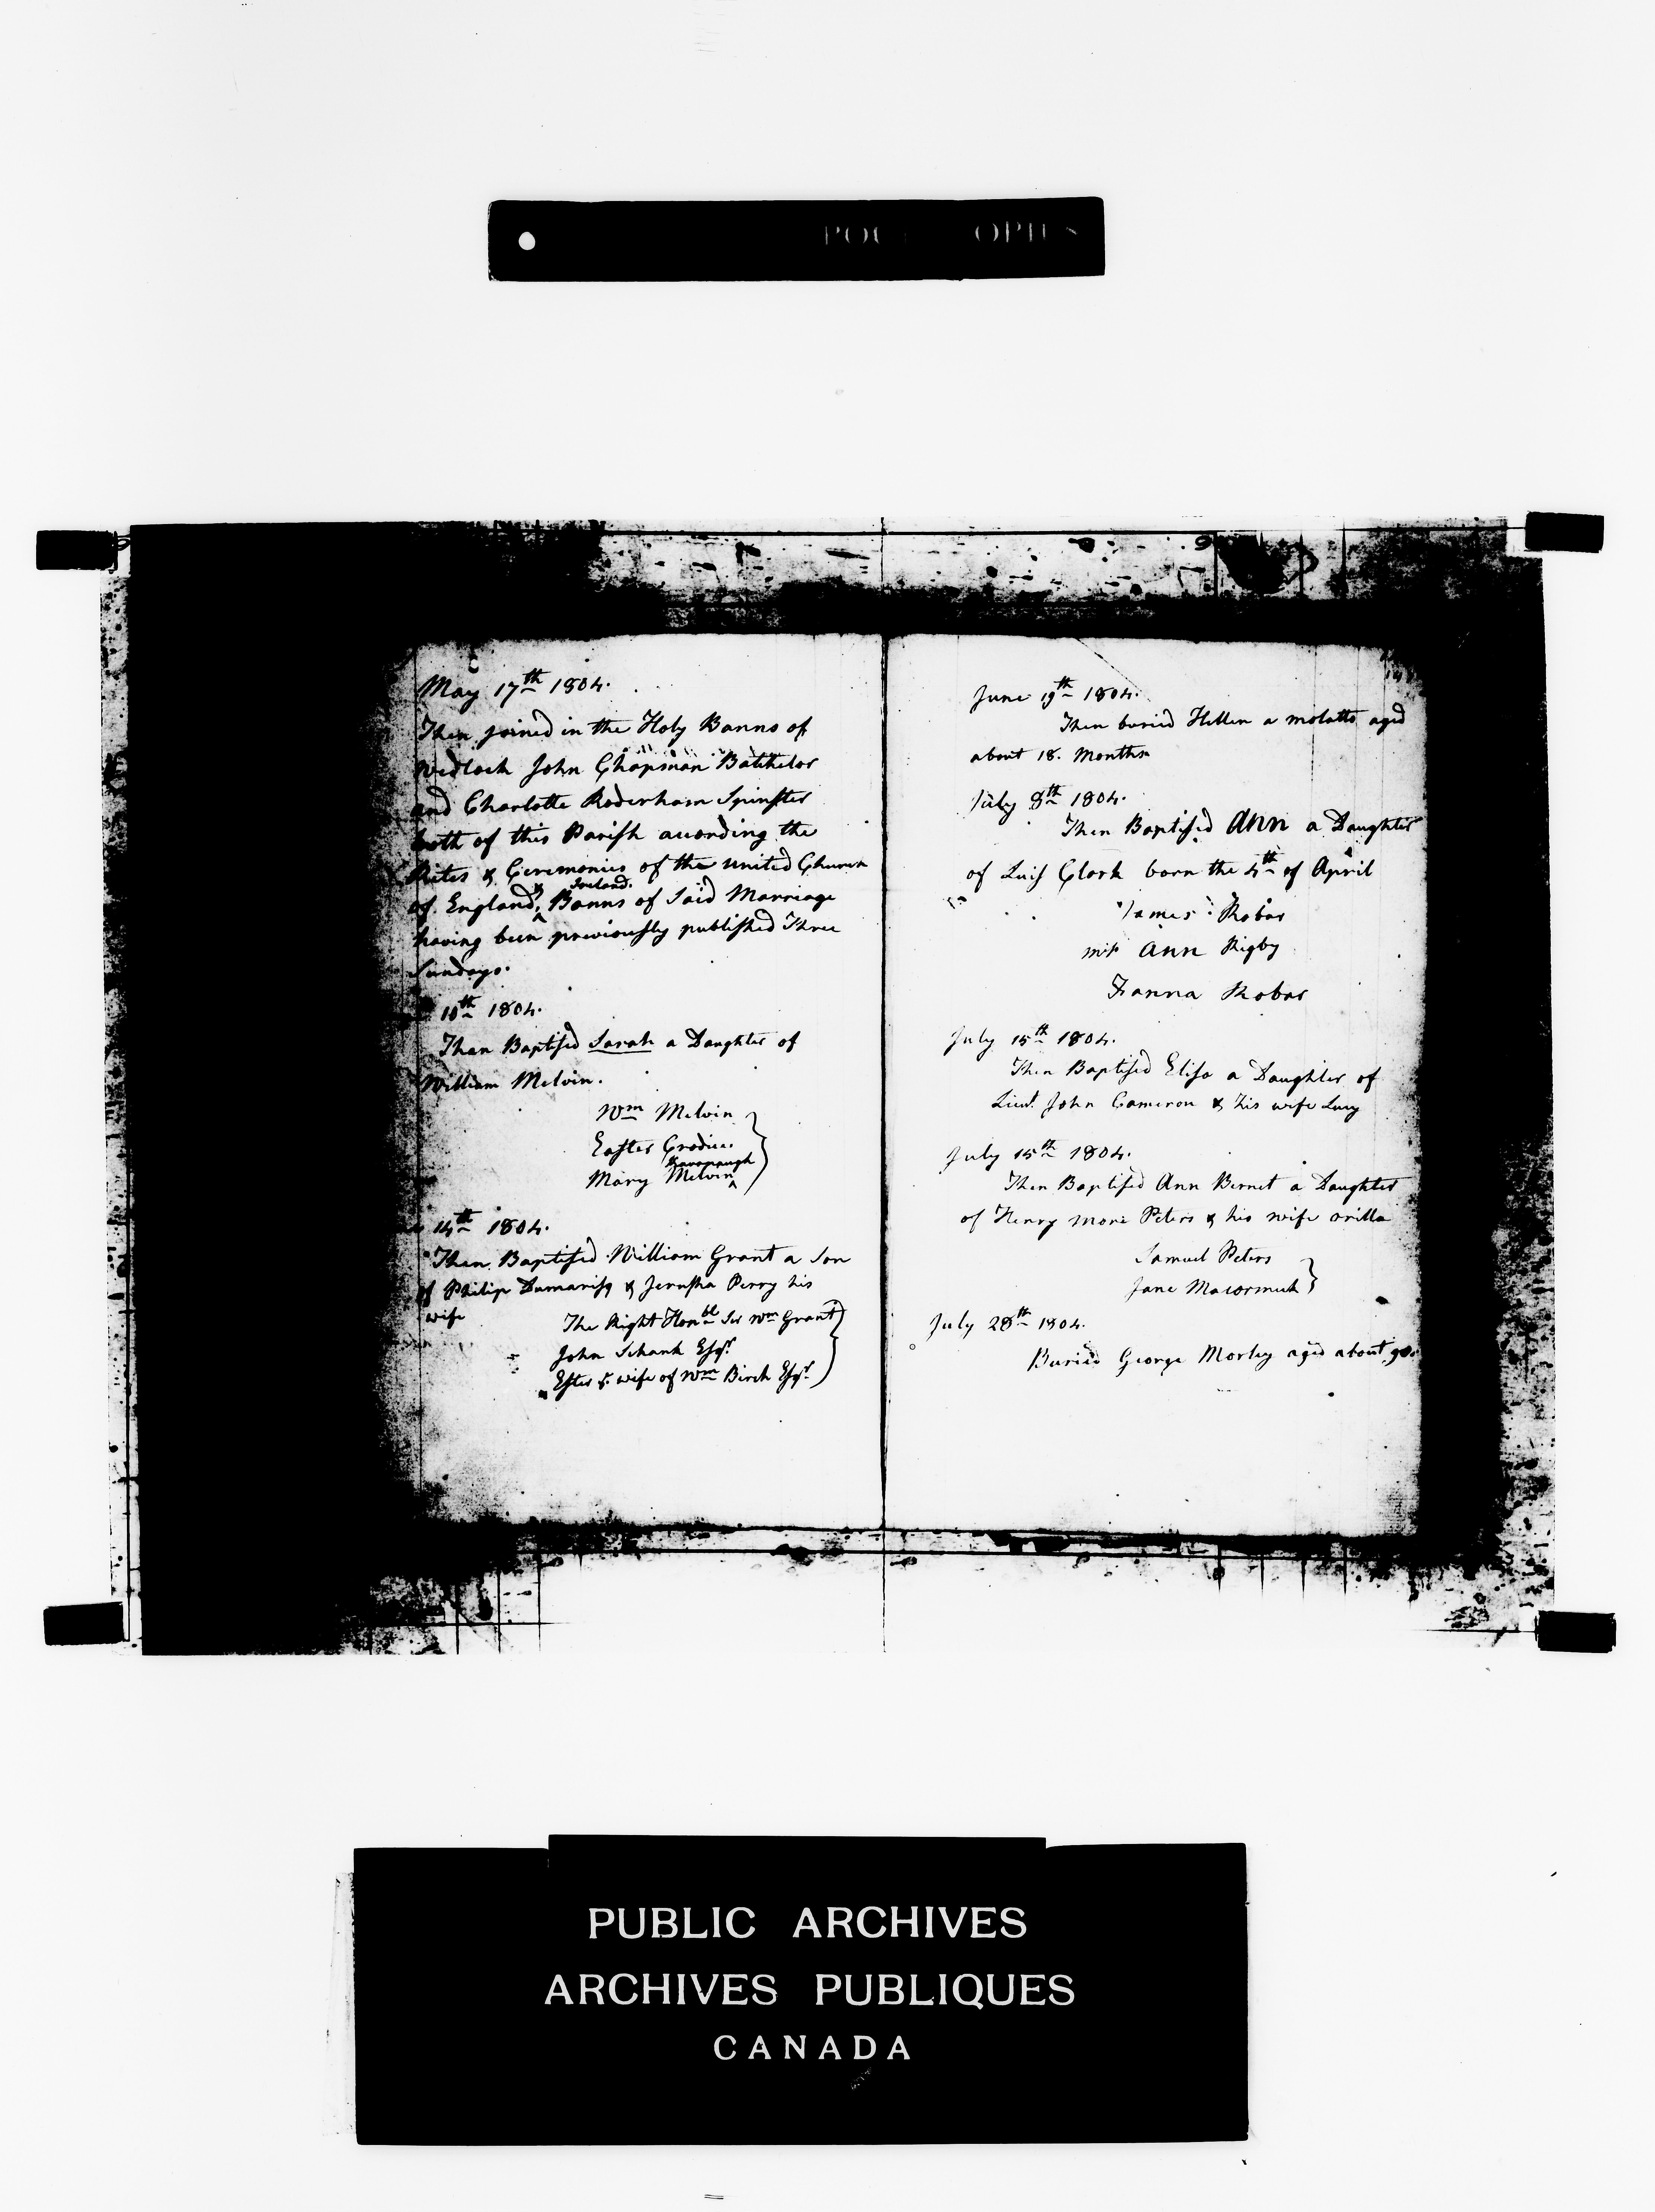 May 17th 1804.
Then joined in the Holy Banns of
Wedlock John Chapman Batchelor
and Charlotte Roderham Spinster
both of this Parish according the
Rites & Ceremonies of the united Church
of England & Ireland. Banns of Said Marriage
having been previously published Three
Sundays.
10th 1804.
Then Baptised Sarah a Daughter of
William Melvin.
Wm Melvin
Easter
Mary Melvin Kavanaugh
14th 1804.
Then Baptised William Grant a Son
of Philip Dumarisq & Jerusha Perry his
wife
The Right Honble Sir Wm Grant
John Schank Esqr.
Ester wife of Wm Birch Esqr.
June 19th 1804.
Then buried Hellen a molatto aged
about 18. Months
July 8th 1804.
Then Baptised Ann a Daughter
of Luis Clark born the 4th of April
James Robar
Ann Rigby
Fanna Robar
July 15th 1804.
Then Baptised Elisa a Daughter of
Lieut. John Cameron & his wife Lucy
July 15th 1804.
Then Baptised Ann Bernet a Daughter
of Henry More Peters & his wife orilla
Samuel Peters
Jane Macormick
July 28th 1804.
Buried George Morley aged about
PUBLIC ARCHIVES
ARCHIVES PUBLIQUES
CANADA